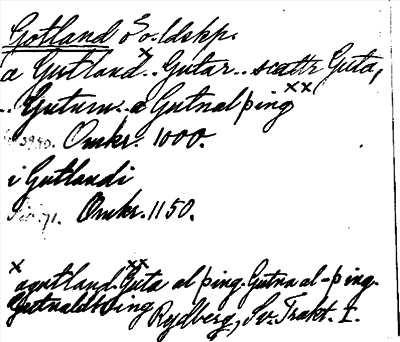 Gotland ö o. ldskp.
a Gutland .. Gutar .. scattr Guta,
.. Gutum .. a Gutnal þing
Omkr. 1000.
i Gutlandi
Omkr. 1150.
agutland Guta al þing. Gutna al-þing.
Gutnaldthing
Rydberg, Sv. Trakt. I.